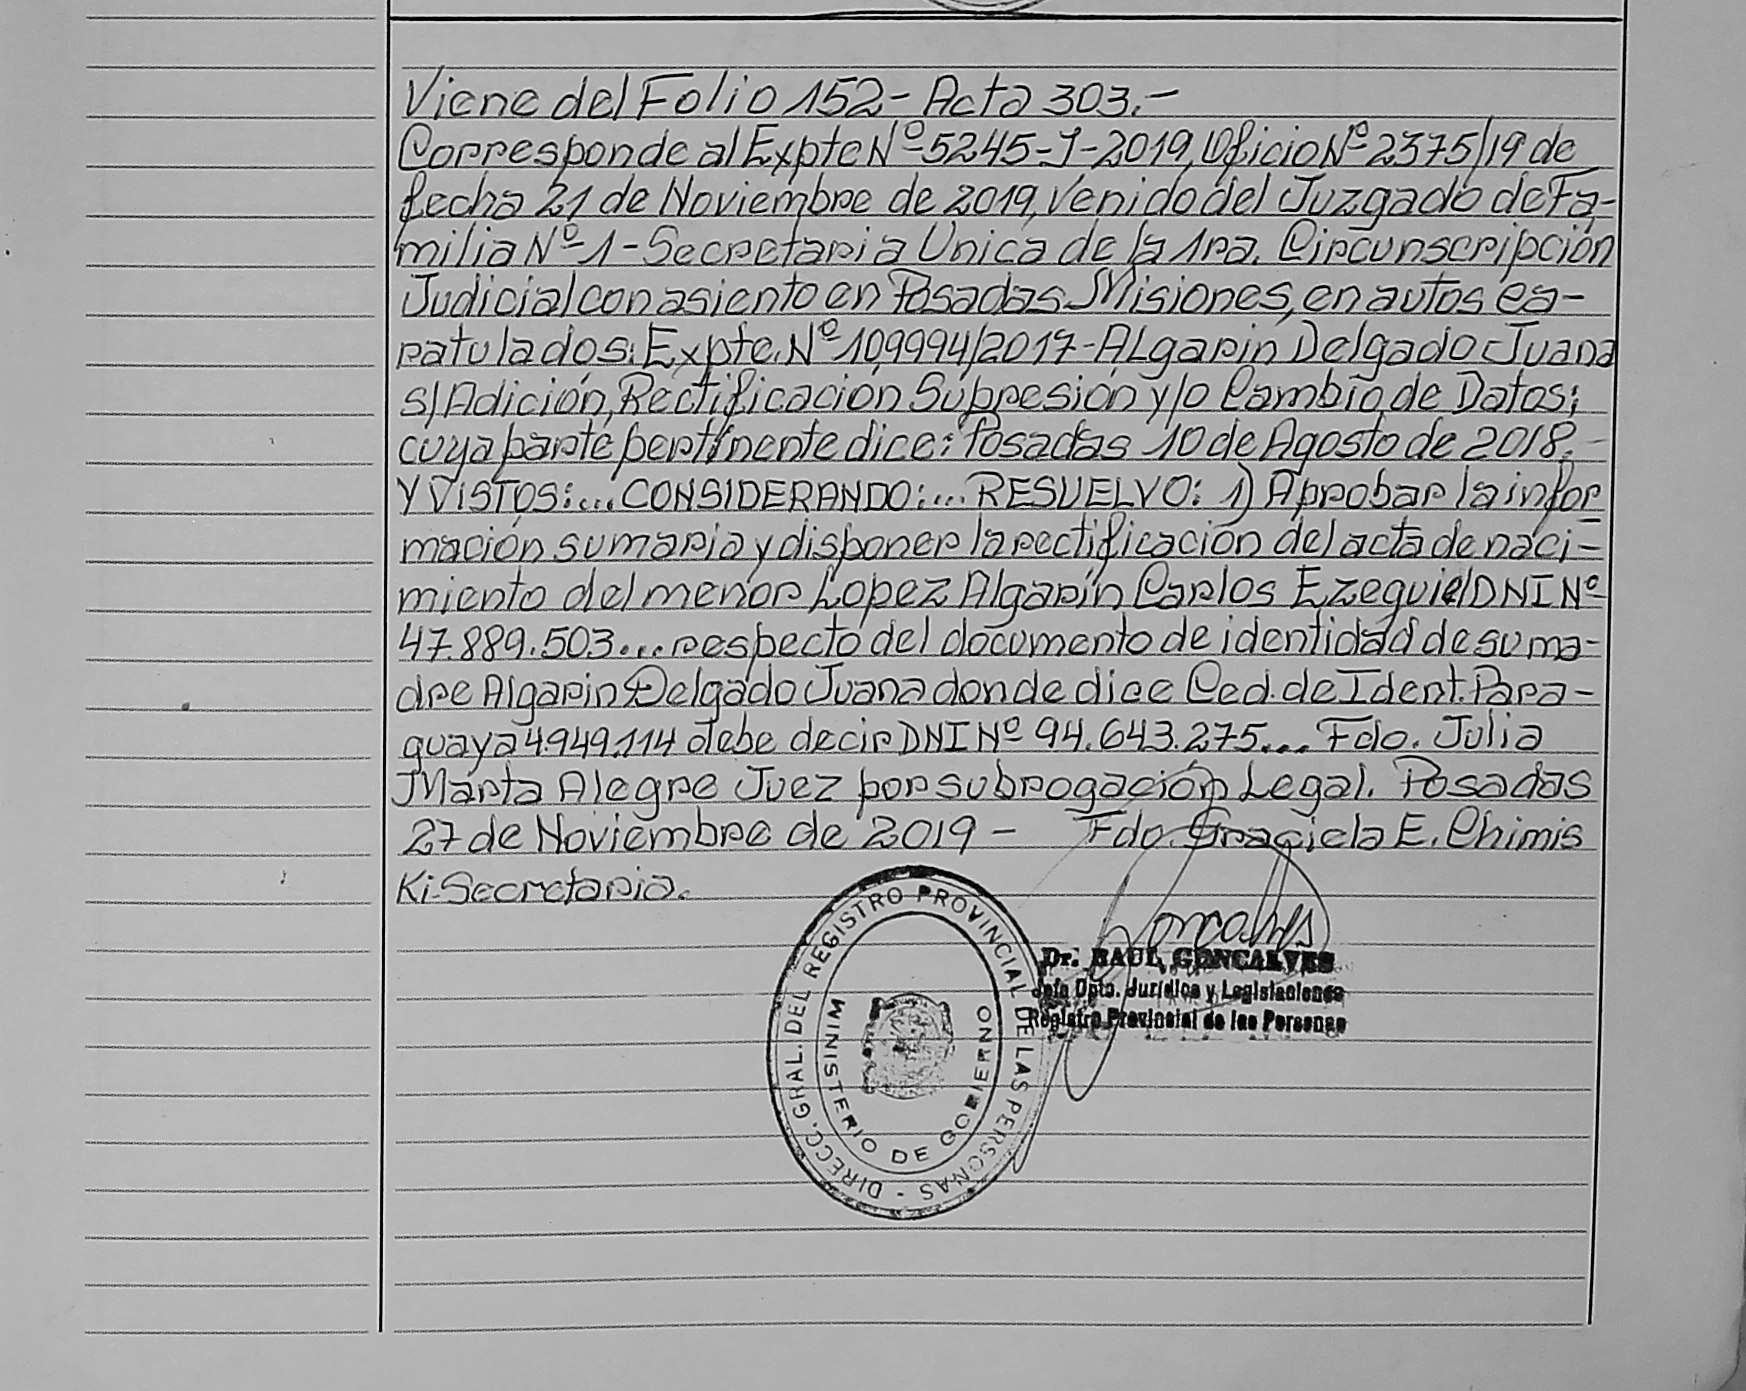 Viene del Folio 152- Acta 303.-
Corresponde al Expte Nº 5245-J-2019, Oficio Nº 2375/19 de
fecha 21 de Noviembre de 2019, Venido del Juzgado de Fa-
milia Nº-1-Secretaria Unica de la 1ra. Circunscripción
Judicial con asiento en Posadas Misiones, en autos ca-
ratulados: Expte. Nº 109994/2017-ALgarín Delgado Juana
s/Adición, Rectificación Supresión y/o Cambio de Datos;
cuya parte pertinente dice: Posadas 10 de Agosto de 2018.-
Y VISTOS:... CONSIDERANDO:... RESUELVO: 1) Aprobar la infor
mación sumaria y disponer la rectificación del acta de naci-
miento del menor Lopez Algarín Carlos Ezequiel DNI Nº
47.889.503... respecto del documento de identidad de su ma-
dre Algarin Delgado Juana donde dice Ced. de Ident. Para-
guaya 4.949.114 debe decir DNI Nº 94.643.275... Fdo. Julia
Marta Alegre Juez por subrogación Legal. Posadas
27 de Noviembre de 2019 - Fdo. Graciela E. Chimis
Ki-Secretaria.
DIRECC. GRAL. DEL REGISTRO PROVINCIAL DE LAS PERSONAS -
MINISTERIO DE GOBIERNO
Goncalves
Dr. RAUL GONCALVES
Jefe Dpto. Jurídico y Legislaciones
Registro Provincial de las Personas